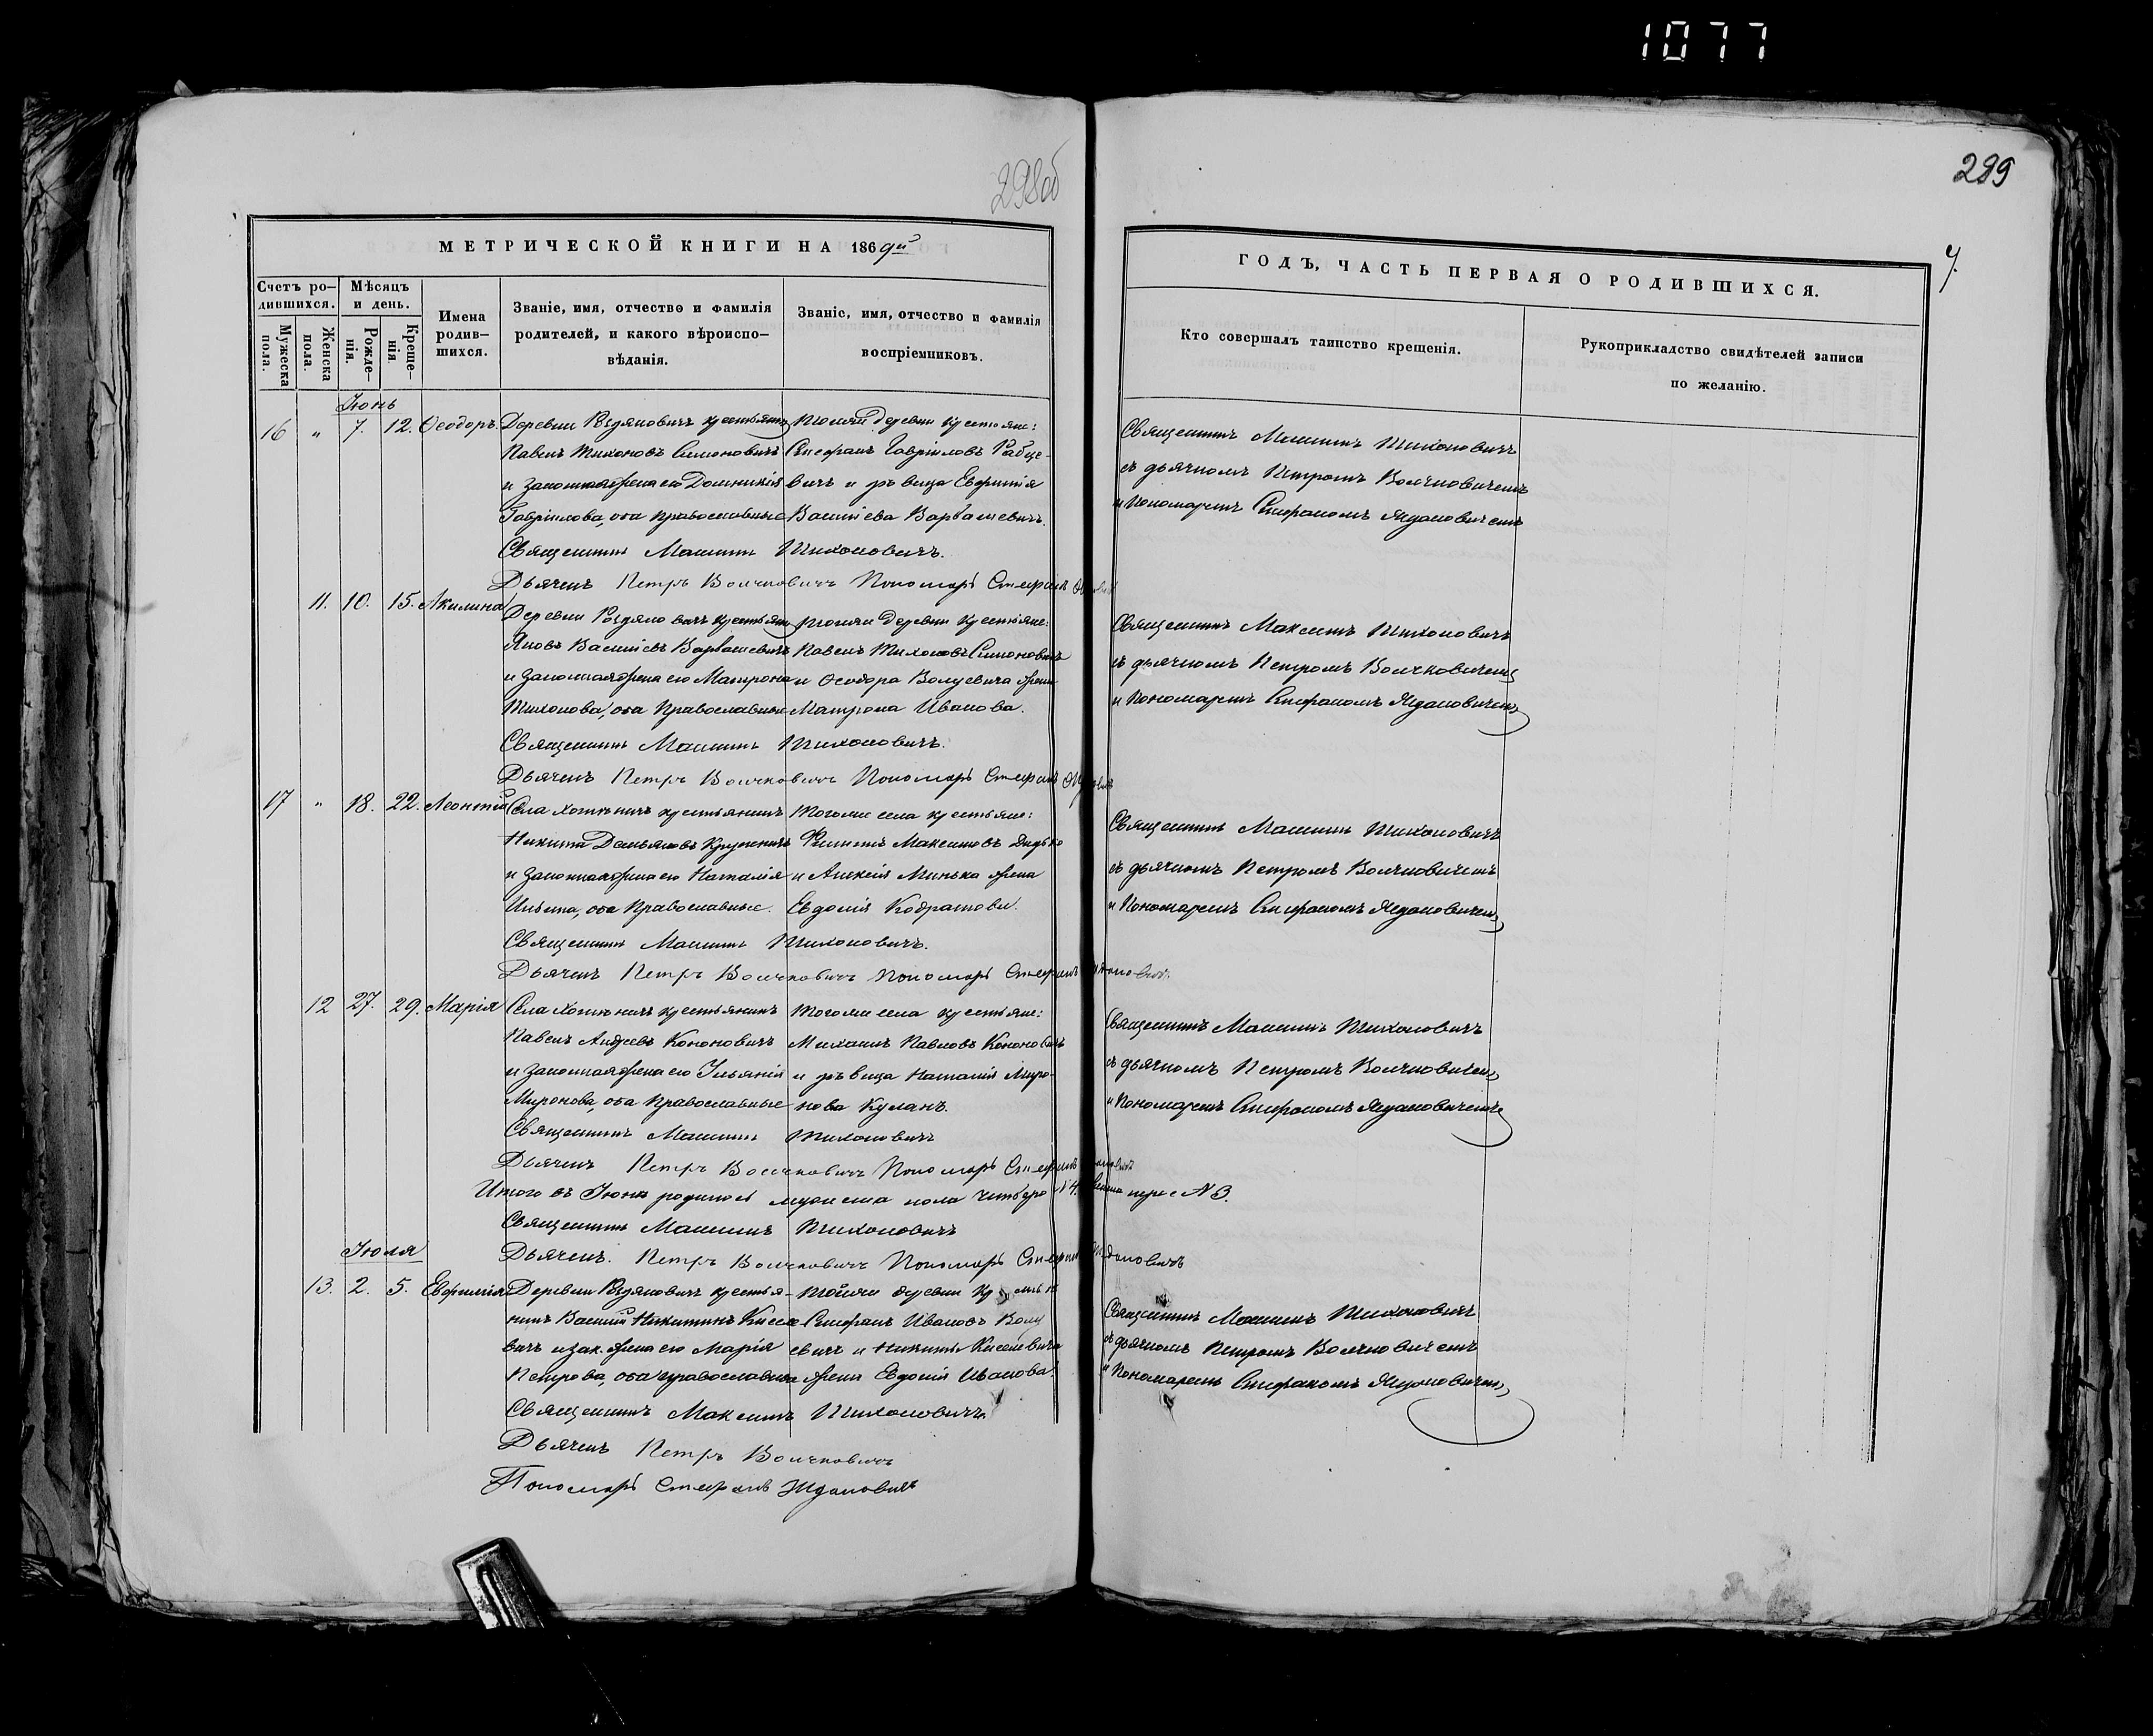 1077
298об
299
МЕТРИЧЕСКОЙ КНИГИ НА 1869й
Счетъ ро-
дившихся.
Мужеска
пола.
Женска
пола.
Мѣсяцъ
и день.
Рожде-
нія.
Креще-
нія.
Имена
родив-
шихся.
Званіе, имя, отчество и фамилія
родителей, и какого вѣроиспо-
вѣданія.
Званіе, имя, отчество и фамилія
воспріемниковъ.
Іюнь
16 " 7. 12. Ѳеодоръ.
Деревни крестьянинъ
Павелъ Тихоновъ Симоновичъ
и законная жена его Домникія
Гавріилова, оба православные
Тойже деревни крестьяне:
Стефанъ Гавріиловъ Рабце-
вичъ и дѣвица Евфимія
Васильева Варвашевичъ.
Священникъ Максимъ Тихоновичъ.
Дьячекъ Петръ Волчковичъ Пономарь Стефанъ
11. 10. 15. Акилина
Деревни крестьянинъ
Яковъ Васильевъ Варвашевичъ
и законная жена его Матрона
Тихонова, оба Православные
Тойже деревни крестьяне:
Павелъ Тихоновъ Симоновичъ
и Ѳеодора Волуевича жена
Матрона Иванова.
Священникъ Максимъ Тихоновичъ.
Дьячекъ Петръ Волчковичъ Пономарь Стефанъ
17 " 18. 22. Леонтій
Села Хотѣничъ крестьянинъ
Никита Демьяновъ
и законная жена его Наталія
Ильина, оба Православные.
Тогоже села крестьяне:
Филиппъ Максимовъ Дидько
и Алексія Минька жена
Евдокія Кодратова.
Священникъ Максимъ Тихоновичъ.
Дьячекъ Петръ Волчковичъ Пономарь Стефанъ Ждановичъ.
12 27. 29. Марія
Села Хотѣничъ крестьянинъ
Павелъ Андреевъ Кононовичъ
и законная жена его Ульянія
Миронова, оба православные
Тогоже села крестьяне:
Михаилъ Павловъ Кононовичъ
и дѣвица Наталія Миро-
нова Куланъ.
Священникъ Максимъ Тихоновичъ
Дьячекъ Петръ Волчковичъ Пономарь Стефанъ Ждановичъ
Итого въ Іюнѣ родилось мужеска пола четверо №4. женска №3.
Священникъ Максимъ Тихоновичъ
Дьячекъ. Петръ Волчковичъ Пономарь Стефанъ Ждановичъ
Іюля
13. 2. 5. Евфимія
Деревни крестья-
нинъ Василій Никитинъ Кисле-
вичъ и зак. жена его Марія
Петрова, оба православные
Тойже деревни
Стефанъ Ивановъ Волу
евичъ и Никиты Киселевича
жена Евдокія Иванова.
Священникъ Максимъ Тихоновичъ
Дьячекъ Петръ Волчковичъ
Пономарь Стефанъ Ждановичъ
ГОДЪ, ЧАСТЬ ПЕРВАЯ О РОДИВШИХСЯ.
Кто совершалъ таинство крещенія.
Рукоприкладство свидѣтелей записи
по желанію.
Священникъ Максимъ Тихоновичъ
съ дьячкомъ Петромъ Волчковичемъ
и Пономаремъ Стефаномъ Ждановичемъ
Священникъ Максимъ Тихоновичъ
съ дьячкомъ Петромъ Волчковичемъ
и Пономаремъ Стефаномъ Ждановичемъ
Священникъ Максимъ Тихоновичъ
съ дьячкомъ Петромъ Волчковичемъ
и Пономаремъ Стефаномъ Ждановичемъ
Священникъ Максимъ Тихоновичъ
съ дьячкомъ Петромъ Волчковичемъ
и Пономаремъ Стефаномъ Ждановичемъ
Священникъ Максимъ Тихоновичъ
съ дьячкомъ Петромъ Волчковичемъ
и Пономаремъ Стефаномъ Ждановичемъ